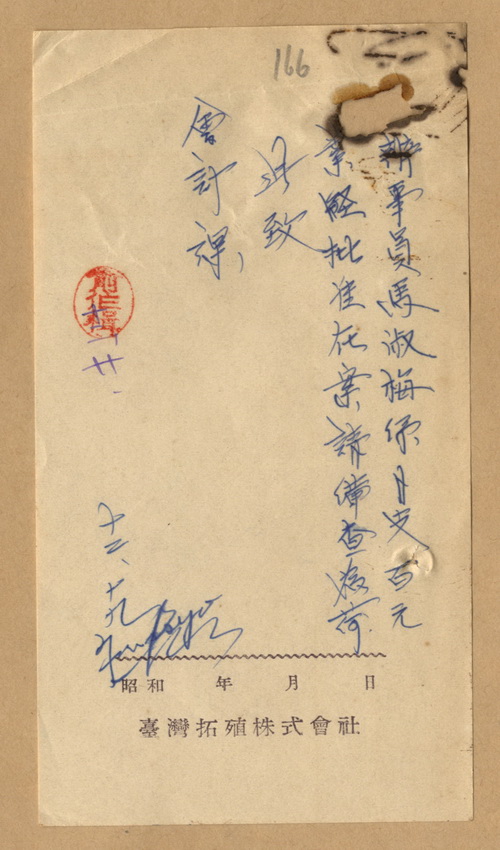 166
辦事員馮淑梅係月支百元
業經批准在案請備查為荷
此致
會計課、
十二、十九
昭和　年　月　日
臺灣拓殖株式會社